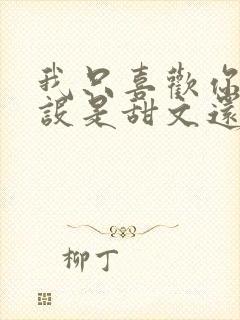 我只喜歡你
設是甜文還
柳丁